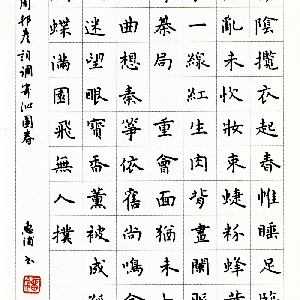 陰攬衣起春帷睡足臨
亂未忺妝束蜨粉蜂
一線紅生肉背畫闌
棊局重會面猶未
曲想秦箏依舊尚鳴金
迷望眼寶香薰被成
蝶滿園飛無人撲
周邦彥詞調寄沁園春